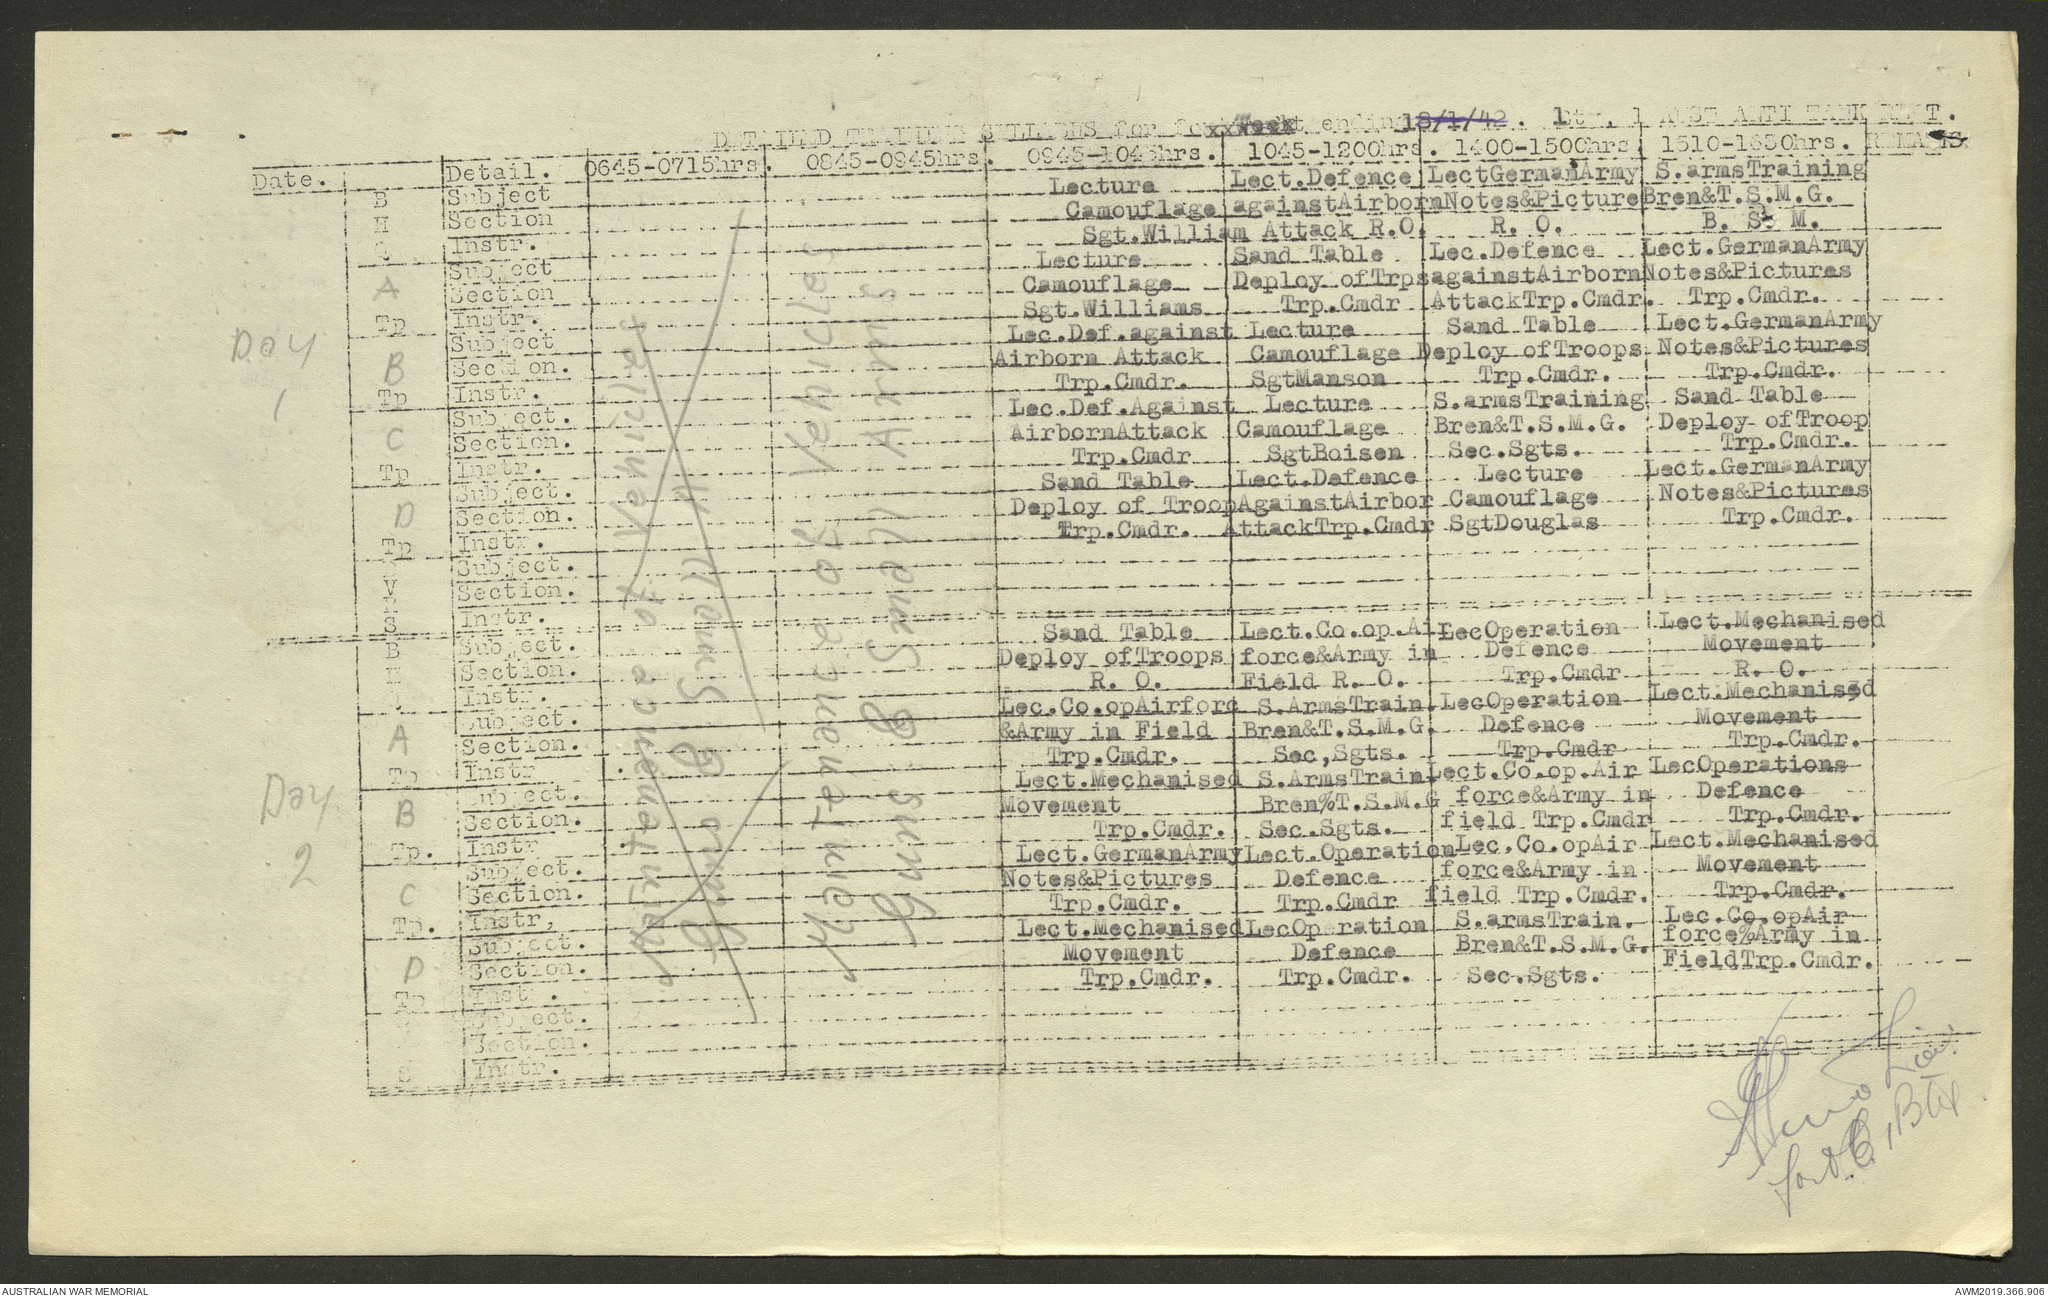 DETAILED TRAINING SYLLABUS for ending 18/1/42. 1 AUST ARMY TANK
Date. Detail. 0645-0715hrs. 0845-0945hrs. 0945-1045hrs. 1045-1200hrs. 1400-1500hrs. 1510-1630hrs. REMARKS
Day 1
B Subject Lecture Lect.Defence LectGermanArmy S.armsTraining
H Section Camouflage againstAirborn Notes&Picture Bren&T.S.M.G.
Q Instr. Sgt.William Attack R.O. R. O. B. S. M.
Subject Lecture Sand Table Lec.Defence Lect.GermanArmy
A Section Camouflage Deploy ofTrps againstAirborn Notes&Pictures
Tp Instr. Sgt.Williams Trp.Cmdr AttackTrp.Cmdr. Trp.Cmdr.
Subject Lec.Def.against Lecture Sand Table Lect.GermanArmy
B Section. Airborn Attack Camouflage Deploy ofTroops Notes&Pictures
Tp Instr. Trp.Cmdr. SgtManson Trp.Cmdr. Trp.Cmdr.
Subject. Lec.Def.Against Lecture S.armsTraining Sand Table
C Section. AirbornAttack Camouflage Bren&T.S.M.G. Deploy ofTroop
Tp Instr. Trp.Cmdr SgtBoisen Sec.Sgts. Trp.Cmdr.
Subject. Sand Table Lect.Defence Lecture Lect.GermanArmy
D Section. Deploy of Troop AgainstAirbor Camouflage Notes&Pictures
Tp Instr. Trp.Cmdr. AttackTrp.Cmdr SgtDouglas Trp.Cmdr.
Subject.
V Section.
S Instr.
Day 2
B Subject. Sand Table Lect.Co.op.Air LecOperation Lect.Mechanised
H Section. Deploy ofTroops force&Army in Defence Movement
Instr. R. O. Field R. O. Trp.Cmdr R. O.
Subject. Lec.Co.opAirforc S.ArmsTrain. LecOperation Lect.Mechanised
A Section. &Army in Field Bren&T.S.M.G. Defence Movement
Tp Instr Trp.Cmdr. Sec,Sgts. Trp.Cmdr Trp.Cmdr.
Subject. Lect.Mechanised S.ArmsTrain. Lect.Co.op.Air LecOperations
B Section. Movement Bren%T.S.M.G force&Army in Defence
Tp. Instr Trp.Cmdr. Sec.Sgts. field Trp.Cmdr Trp.Cmdr.
Subject. Lect.GermanArmy Lect.Operation Lec.Co.opAir Lect.Mechanised
C Section. Notes&Pictures Defence force&Army in Movement
Tp. Instr, Trp.Cmdr. Trp.Cmdr field Trp.Cmdr. Trp.Cmdr.
Subject. Lect.Mechanised LecOperation S.armsTrain. Lec.Co.opAir
D Section. Movement Defence Bren&T.S.M.G. force%Army in
Tp Inst. Trp.Cmdr. Trp.Cmdr. Sec.Sgts. FieldTrp.Cmdr.
Subject.
Section.
S Instr.
Maintenance of Vehicles
Arms & Gun
Maintenance of Vehicles
Guns & Small Arms
Lieu.
for O.C. 1 Bty
AUSTRALIAN WAR MEMORIAL
AWM2019.366.906